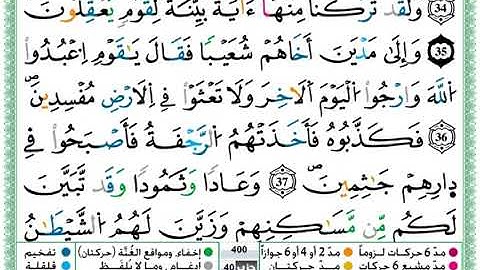 34 وَلَقَد تَّرَكْنَا مِنْهَا ءَايَةَۢ بَيِّنَةً لِّقَوْمٍ يَعْقِلُونَ
35 وَإِلَىٰ مَدْيَنَ أَخَاهُمْ شُعَيْبًا فَقَالَ يَٰقَوْمِ اِعْبُدُوا
اللَّهَ وَارْجُوا الْيَوْمَ الَاخِرَ وَلَا تَعْثَوْا فِي اِلَارْضِ مُفْسِدِينَ
36 فَكَذَّبُوهُ فَأَخَذَتْهُمُ الرَّجْفَةُ فَأَصْبَحُوا فِي
دِارِهِمْ جَٰثِمِينَ 37 وَعَادًا وَثَمُودًا وَقَد تَّبَيَّنَ
لَكُم مِّن مَّسَٰكِنِهِمْ وَزَيَّنَ لَهُمُ الشَّيْطَٰنُ
مدّ 6 حركات لزوماً مدّ 2 أو 4 أو 6 جوازاً 400 إخفاء، ومواقع الغُنَّة (حركتان) تفخيم
مدّ مشبع 6 حركات مدّ حركتان إدغام، وما لا يُلفَظ قلقلة